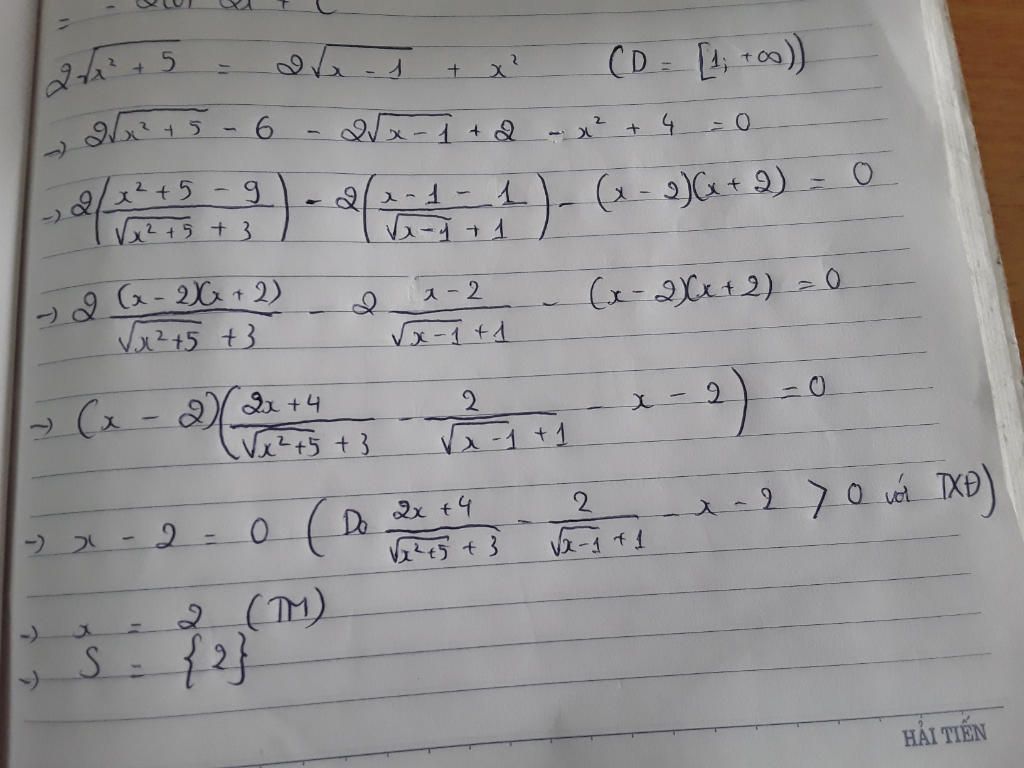 2√(x² + 5) = 2√(x - 1) + x² (D = [1; +∞))
→ 2√(x² + 5) - 6 - 2√(x - 1) + 2 - x² + 4 = 0
→ 2((x² + 5 - 9)/(√(x² + 5) + 3)) - 2((x - 1 - 1)/(√(x - 1) + 1)) - (x - 2)(x + 2) = 0
→ 2 ((x - 2)(x + 2))/(√(x² + 5) + 3) - 2 (x - 2)/(√(x - 1) + 1) - (x - 2)(x + 2) = 0
→ (x - 2)((2x + 4)/(√(x² + 5) + 3) - 2/(√(x - 1) + 1) - x - 2) = 0
→ x - 2 = 0 (Do (2x + 4)/(√(x² + 5) + 3) - 2/(√(x - 1) + 1) - x - 2 > 0 với TXĐ)
→ x = 2 (TM)
→ S = {2}
HẢI TIẾN